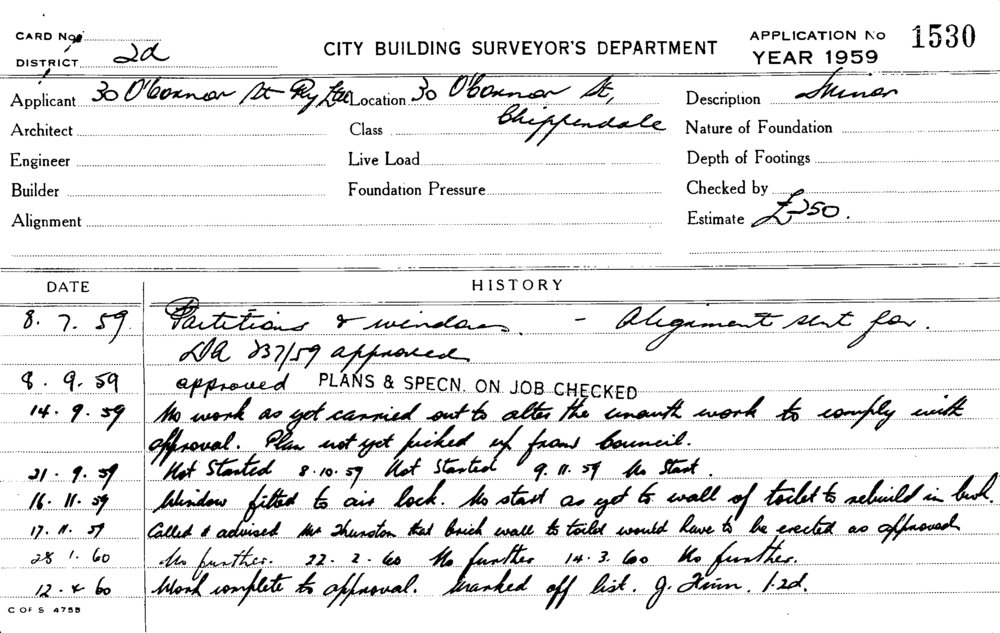 CARD No.
DISTRICT 2d
CITY BUILDING SURVEYOR'S DEPARTMENT
APPLICATION No 1530
YEAR 1959
Applicant 30 O'Connor St Pty Ltd Location 30 O'Connor St, Chippendale
Description Minor
Architect
Class
Nature of Foundation
Engineer
Live Load
Depth of Footings
Builder
Foundation Pressure
Checked by
Alignment
Estimate £250.
DATE HISTORY
8. 7. 59 Partitions & windows. - Alignment sent for.
DA 237/59 approved
8. 9. 59 approved PLANS & SPECN. ON JOB CHECKED
14. 9. 59 No work as yet carried out to alter the unauth work to comply with
approval. Plan not yet picked up from Council.
21. 9. 59 Not Started 8.10.59 Not Started 9.11.59 No Start.
16. 11. 59 Window fitted to air lock. No start as yet to wall of toilet to rebuild in bwk.
17. 11. 59 Called & advised Mr Thurston that brick wall to toilet would have to be erected as approved
28. 1. 60 No further. 22. 2. 60 No further 14. 3. 60 No further.
12. 4. 60 Work complete to approval. Marked off list. J. 1.2d.
C OF S 4758